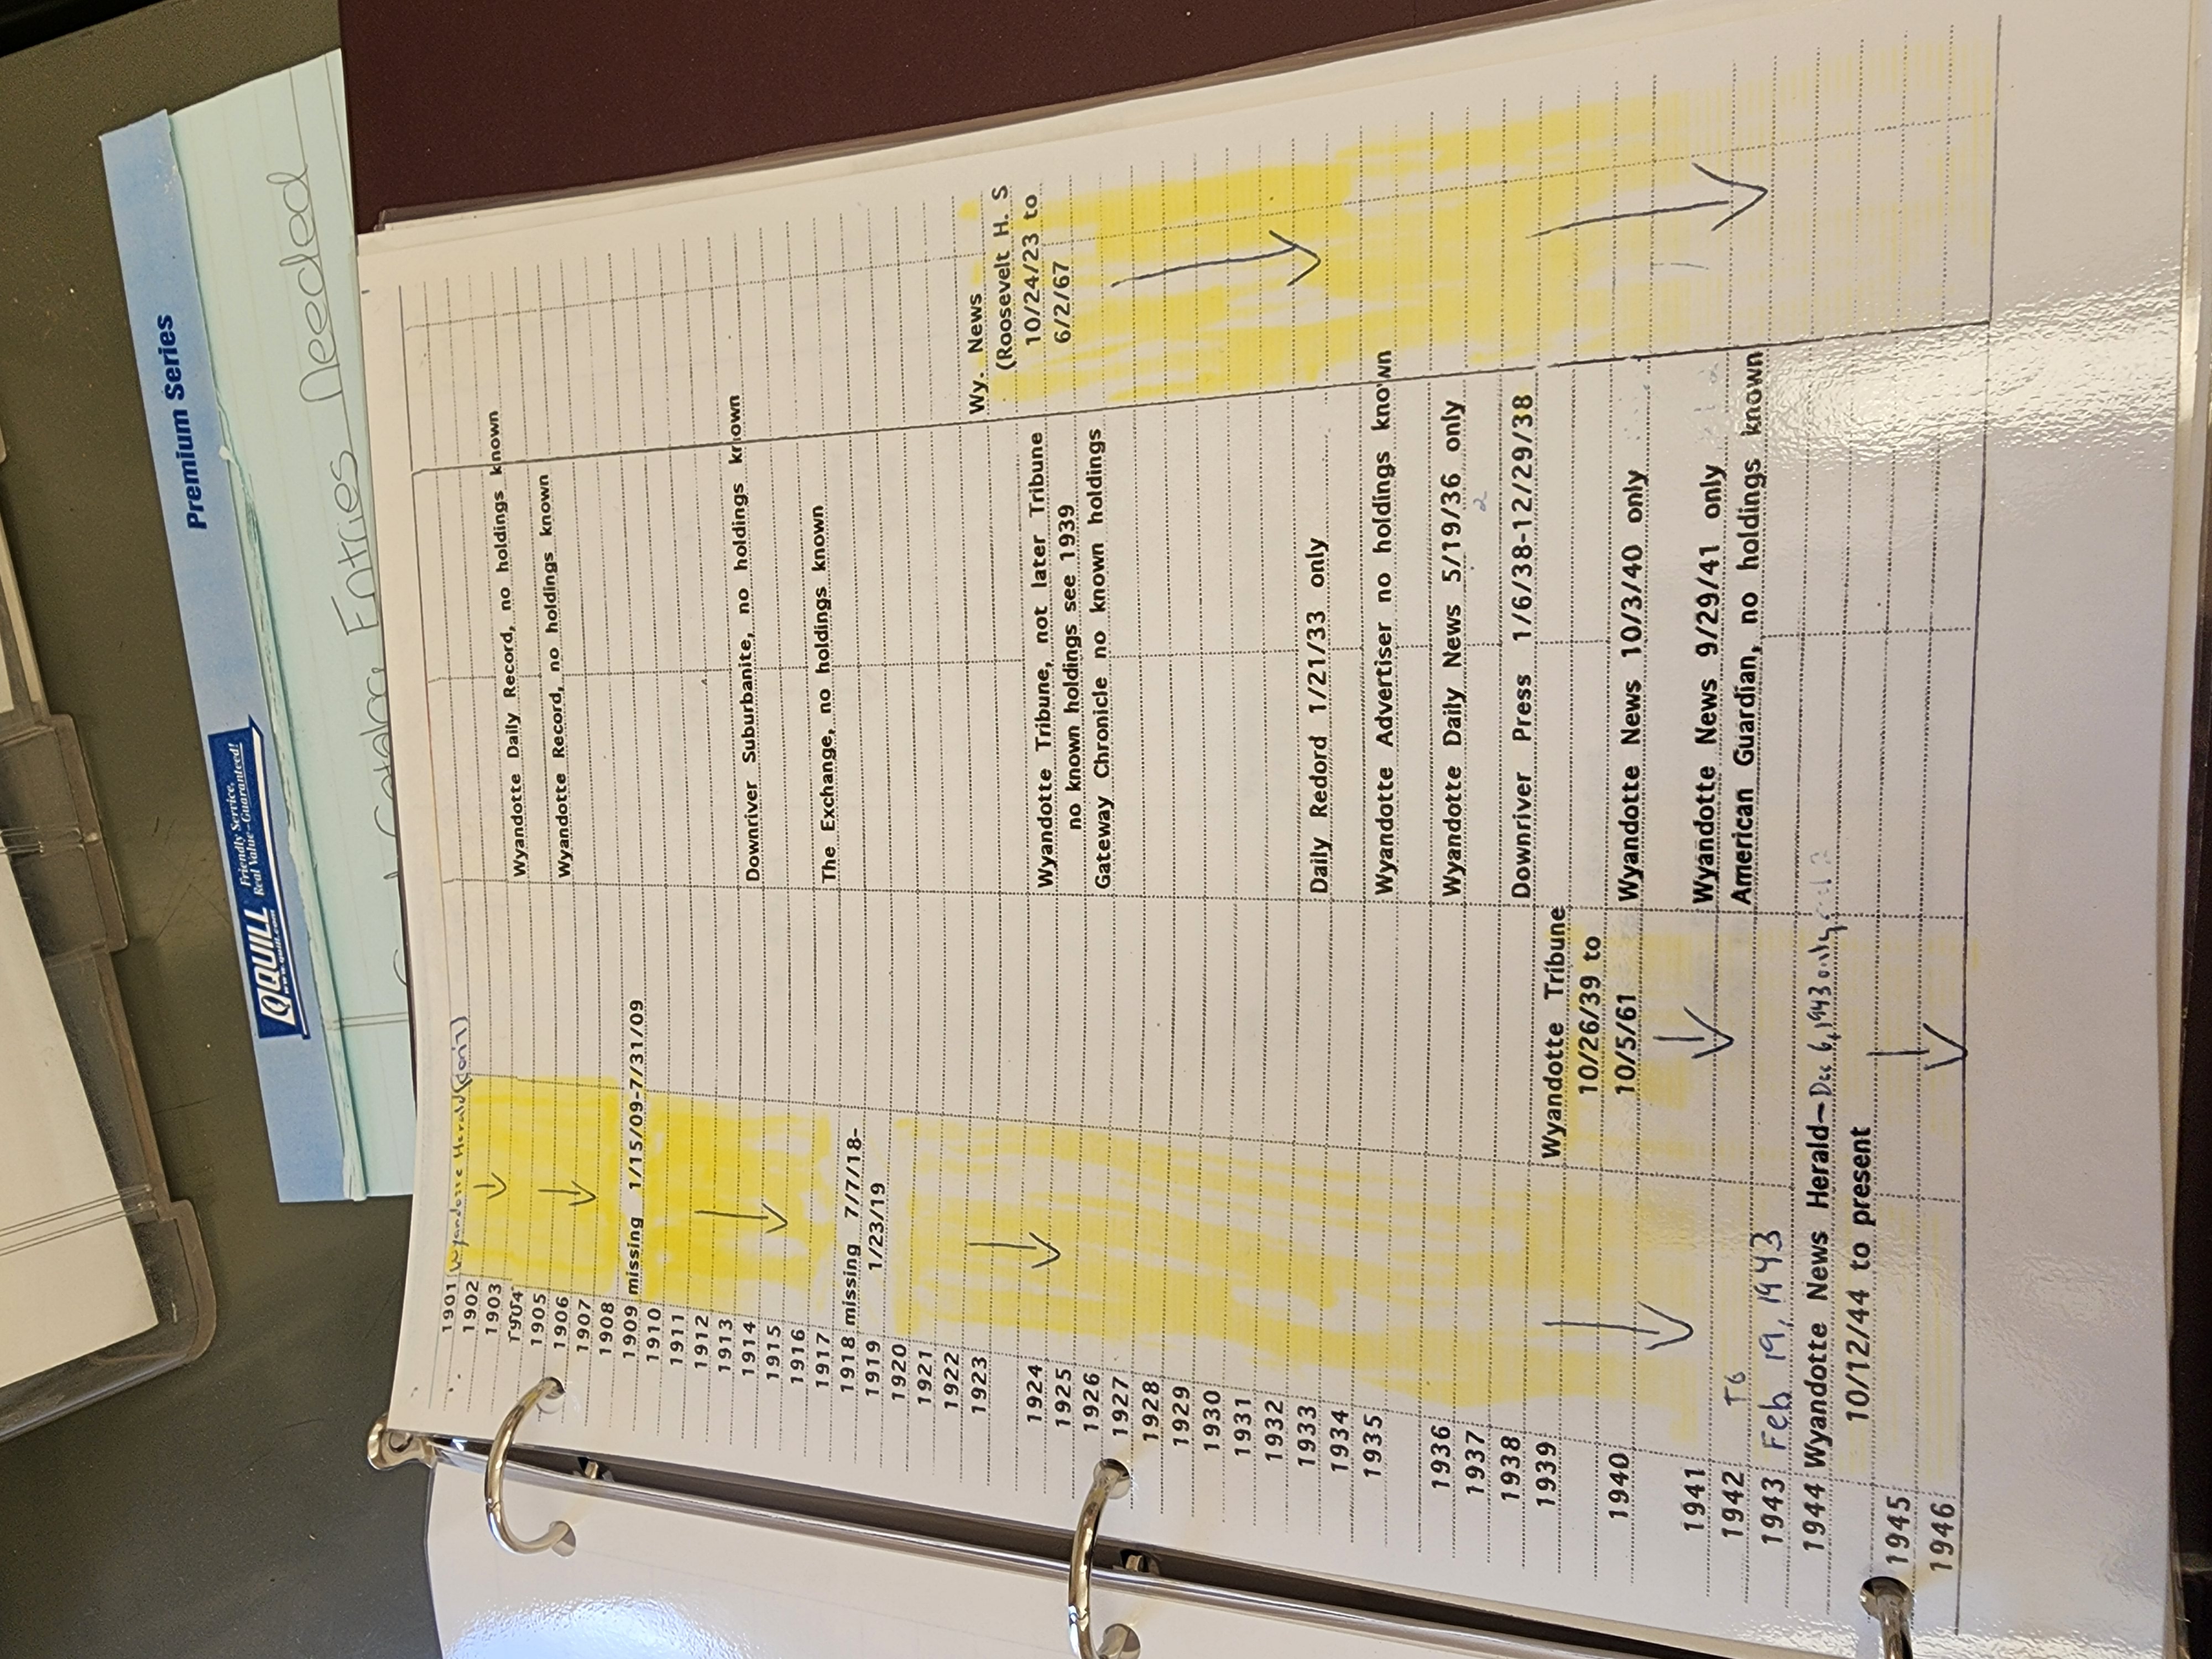 Premium Series
QUILL
www.quill.com
Friendly Service,
Real Value - Guaranteed!
Entries Needed
1901 Wyandotte Herald (con't)
1902
1903
1904 Wyandotte Daily Record, no holdings known
1905
1906 Wyandotte Record, no holdings known
1907
1908
1909 missing 1/15/09-7/31/09
1910
1911
1912
1913
1914 Downriver Suburbanite, no holdings known
1915
1916
1917 The Exchange, no holdings known
1918 missing 7/7/18-
1919 1/23/19
1920
1921
1922
1923 Wy. News
(Roosevelt H. S
1924 Wyandotte Tribune, not later Tribune 10/24/23 to
1925 no known holdings see 1939 6/2/67
1926 Gateway Chronicle no known holdings
1927
1928
1929
1930
1931
1932
1933 Daily Redord 1/21/33 only
1934
1935 Wyandotte Advertiser no holdings known
1936 Wyandotte Daily News 5/19/36 only
1937
1938 Downriver Press 1/6/38-12/29/38
1939 Wyandotte Tribune
10/26/39 to
1940 10/5/61 Wyandotte News 10/3/40 only
1941 Wyandotte News 9/29/41 only
1942 To American Guardian, no holdings known
1943 Feb 19, 1943
1944 Wyandotte News Herald- Dec 6, 1943 only
10/12/44 to present
1945
1946